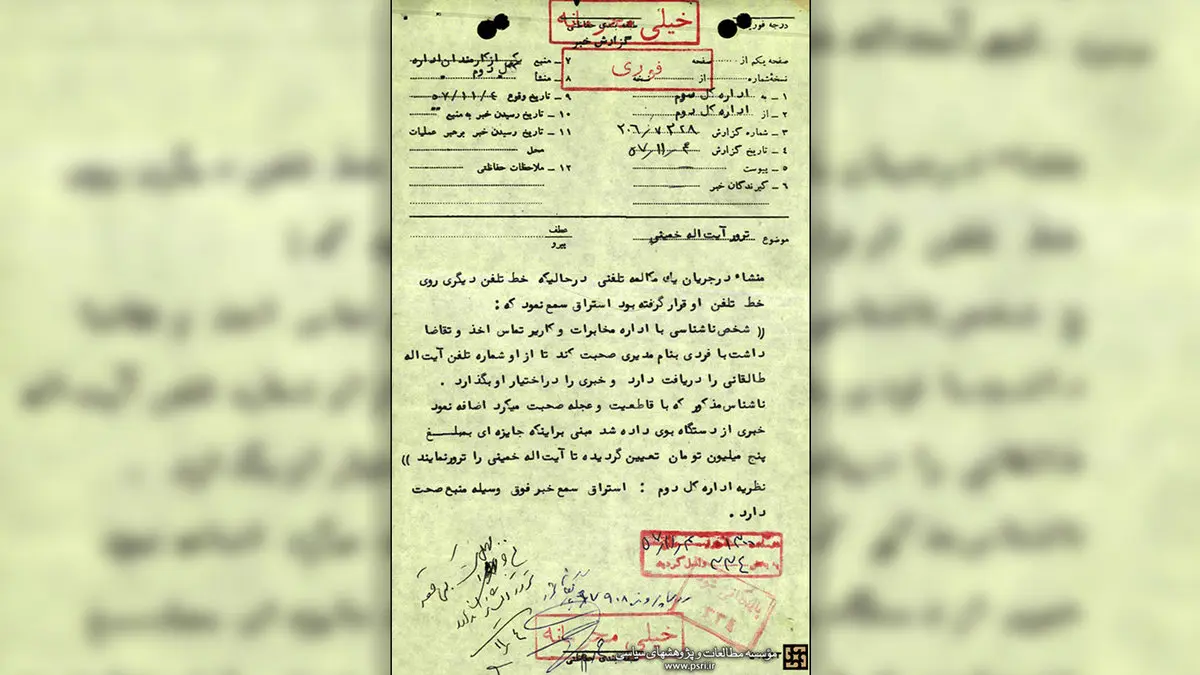 خیلی محرمانه
طبقه بندی حفاظتی
درجه فوریت
گزارش خبر
فوری
صفحه یکم از صفحه
نسخه شماره از نسخه
۱ ـ به اداره کل سوم
۲ ـ از اداره کل دوم
۳ ـ شماره گزارش ۲۰۶/۷۳۲۸
۴ ـ تاریخ گزارش ۵۷/۱۱/۴
۵ ـ پیوست
۶ ـ گیرندگان خبر
۷ ـ منبع یکی از کارمندان اداره
۸ ـ منشأ کل دوم
۹ ـ تاریخ وقوع ۵۷/۱۱/۴
۱۰ ـ تاریخ رسیدن خبر به منبع
۱۱ ـ تاریخ رسیدن خبر برهبر عملیات
محل
۱۲ ـ ملاحظات حفاظتی
موضوع ترور آیت اله خمینی
عطف
پیرو
منشاء درجریان یك مکالمه تلفنی درحالیکه خط تلفن دیگری روی
خط تلفن او قرار گرفته بود استراق سمع نمود که :
(( شخص ناشناسی با اداره مخابرات و کاریر تماس اخذ و تقاضا
داشت با فردی بنام مدیری صحبت کند تا از او شماره تلفن آیت اله
طالقانی را دریافت دارد و خبری را در اختیار او بگذارد .
ناشناس مذکور که با قاطعیت و عجله صحبت میکرد اضافه نمود
خبری از دستگاه بوی داده شد مبنی براینکه جایزه ای بمبلـــغ
پنج میلیون تومان تعیین گردیده تا آیت اله خمینی را ترور نمایند ))
نظریه اداره کل دوم : استراق سمع خبر فوق وسیله منبع صحت
دارد .
به بخش ۳۳۴ واصل گردید
بایگانی شود
۳۳۴
خیلی محرمانه
طبقه بندی حفاظتی
مؤسسه مطالعات و پژوهشهای سیاسی
www.psri.ir